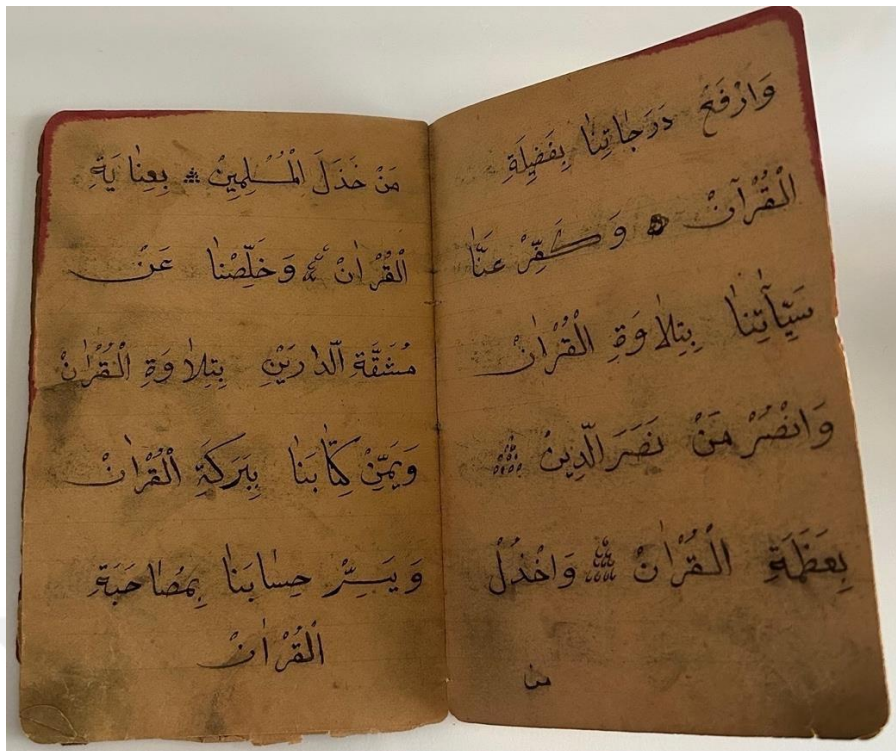 وَارْفَعْ دَرَجَاتِنَا بِفَضِيلَةِ
الْقُرْآنْ وَكَفِّرْ عَنَّا
سَيِّأٰتِنَا بِتِلَاوَةِ الْقُرْاٰنْ
وَانْصُرْ مَنْ نَصَرَ الدِّينْ
بِعَظَمَةِ الْقُرْاٰنْ وَاخْذُلْ
مَنْ خَذَلَ الْمُسْلِمِينْ بِعِنَايَةِ
الْقُرْاٰنْ وَخَلِّصْنَا عَنْ
مُشَقَّةِ الدَّارَيْنِ بِتِلَاوَةِ الْقُرْاٰنْ
وَيَمِّنْ كِتَابَنَا بِبَرَكَةِ الْقُرْاٰنْ
وَيَسِّرْ حِسَابَنَا بِمُصَاحَبَةِ
الْقُرْاٰنْ